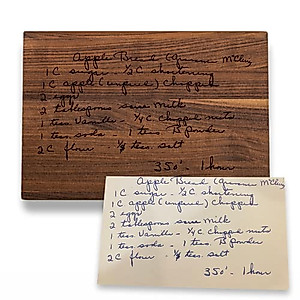 Apple Bread
1 C sugar - ½ C shortening
1 C apple (unpeeled) chopped
2 eggs
2 tablespoons sour milk
1 teas Vanilla - ½ C chopped nuts
1 teas soda - 1 teas. B powder
2 C flour - ½ teas salt
350° - 1 hour
Apple Bread
1 C sugar - ½ C shortening
1 C apple (unpeeled) chopped
2 eggs
2 tablespoons sour milk
1 teas Vanilla - ½ C chopped nuts
1 teas soda - 1 teas. B powder
2 C flour - ½ teas salt
350° - 1 hour